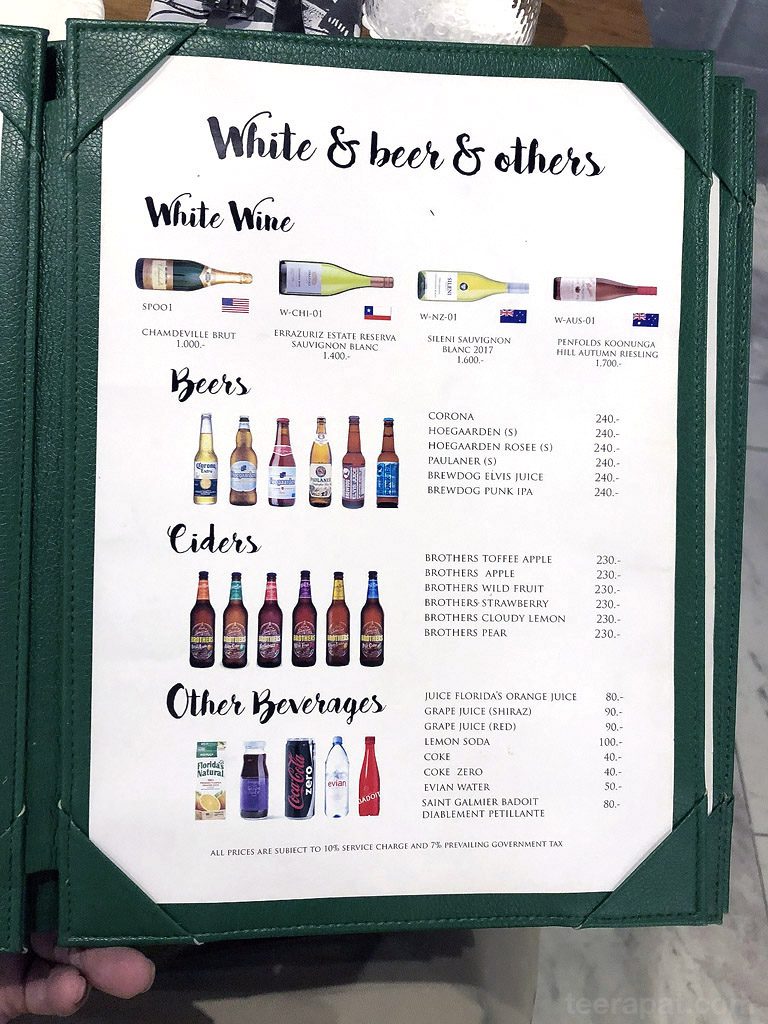 White & beer & others
White Wine
SP001
W-CHI-01
W-NZ-01
W-AUS-01
CHAMDEVILLE BRUT
1.000.-
ERRAZURIZ ESTATE RESERVA
SAUVIGNON BLANC
1.400.-
SILENI SAUVIGNON
BLANC 2017
1,600.-
PENFOLDS KOONUNGA
HILL AUTUMN RIESLING
1,700.-
Beers
CORONA 240.-
HOEGAARDEN (S) 240.-
HOEGAARDEN ROSEE (S) 240.-
PAULANER (S) 240.-
BREWDOG ELVIS JUICE 240.-
BREWDOG PUNK IPA 240.-
Ciders
BROTHERS TOFFEE APPLE 230.-
BROTHERS APPLE 230.-
BROTHERS WILD FRUIT 230.-
BROTHERS STRAWBERRY 230.-
BROTHERS CLOUDY LEMON 230.-
BROTHERS PEAR 230.-
Other Beverages
JUICE FLORIDA'S ORANGE JUICE 80.-
GRAPE JUICE (SHIRAZ) 90.-
GRAPE JUICE (RED) 90.-
LEMON SODA 100.-
COKE 40.-
COKE ZERO 40.-
EVIAN WATER 50.-
SAINT GALMIER BADOIT 80.-
DIABLEMENT PETILLANTE
Florida's
Natural
Coca-Cola
zero
evian
BADOIT
ALL PRICES ARE SUBJECT TO 10% SERVICE CHARGE AND 7% PREVAILING GOVERNMENT TAX
teerapat.com